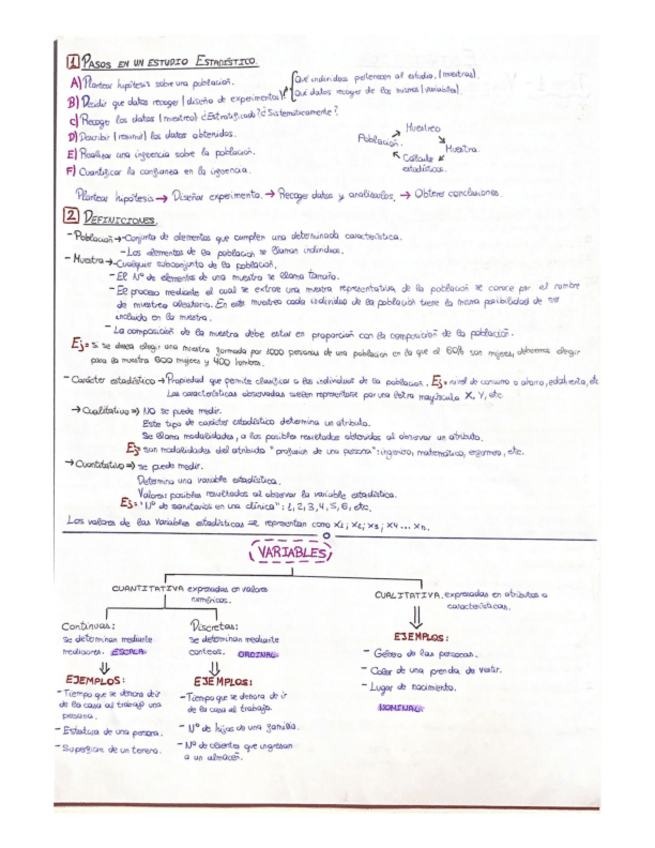 1 PASOS EN UN ESTUDIO ESTADÍSTICO.
A) Plantear hipótesis sobre una población.
B) Decidir que datos recoger (diseño de experimentos)
Qué individuos pertenecen al estudio, (muestras).
Qué datos recoger de los mismos (variables).
C) Recoge los datos (muestreo) ¿Estratificado? ¿Sistemáticamente?.
D) Describir (resumir) los datos obtenidos.
E) Realizar una inferencia sobre la población.
F) Cuantificar la confianza en la inferencia.
Población. → Muestreo → Muestra. → Cálculo estadísticos.
Plantear hipótesis → Diseñar experimento. → Recoger datos y analizarlos, → Obtener conclusiones
2 DEFINICIONES.
- Población → Conjunto de elementos que cumplen una determinada característica.
- Los elementos de la población se llaman individuos.
- Muestra → Cualquier subconjunto de la población.
- El Nº de elementos de una muestra se llama tamaño.
- El proceso mediante el cual se extrae una muestra representativa de la población se conoce por el nombre
de muestreo aleatorio. En este muestreo cada individuo de la población tiene la misma posibilidad de ser
incluido en la muestra.
- La composición de la muestra debe estar en proporción con la composición de la población.
Ej: Si se desea elegir una muestra formada por 1000 personas de una población en la que el 60% son mujeres, debemos elegir
para la muestra 600 mujeres y 400 hombres.
- Carácter estadístico → Propiedad que permite clasificar a los individuos de la población. Ej: nivel de consumo o ahorro, edad, venta, etc
Las características observadas suelen representarse por una letra mayúscula X, Y, etc
→ Cualitativo ⇒ NO se puede medir.
Este tipo de carácter estadístico determina un atributo.
Se llama modalidades, a los posibles resultados obtenidos al observar un atributo.
Ej: son modalidades del atributo "profesión de una persona": ingeniero, matemático, enfermero, etc.
→ Cuantitativo ⇒ se puede medir.
Determina una variable estadística.
Valores: posibles resultados al observar la variable estadística.
Ej: "Nº de sanitarios en una clínica": 1, 2, 3, 4, 5, 6, etc.
Los valores de las Variables estadísticas se representan como x1; x2; x3; x4 ... xn.
VARIABLES
CUANTITATIVA expresadas en valores
numéricos.
CUALITATIVA, expresadas en atributos o
características.
Continuas:
se determinan mediante
mediciones. ESCALA
EJEMPLOS:
- Tiempo que se demora de ir
de la casa al trabajo una
persona.
- Estatura de una persona.
- Superficie de un terreno.
Discretas:
se determinan mediante
conteos. ORDINAL
EJEMPLOS:
- Tiempo que se demora de ir
de la casa al trabajo.
- Nº de hijos de una familia.
- Nº de clientes que ingresan
a un almacén.
EJEMPLOS:
- Género de las personas.
- Color de una prenda de vestir.
- Lugar de nacimiento.
NOMINAL